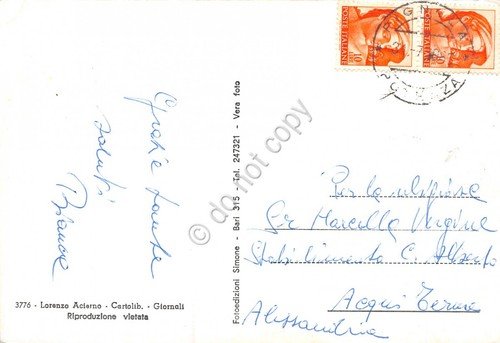 Grazie tante
saluti
Bianca
3776 - Lorenzo Acierno - Cartolib. - Giornali
Riproduzione vietata
Fotoedizioni Simone - Bari 315 - Tel. 247321 - Vera foto
do not copy
POSTE ITALIANE
10
POSTE ITALIANE
10
Per la
Marcella Vergine
Stabilimento C. Alberto
Acqui Terme
Alessandria